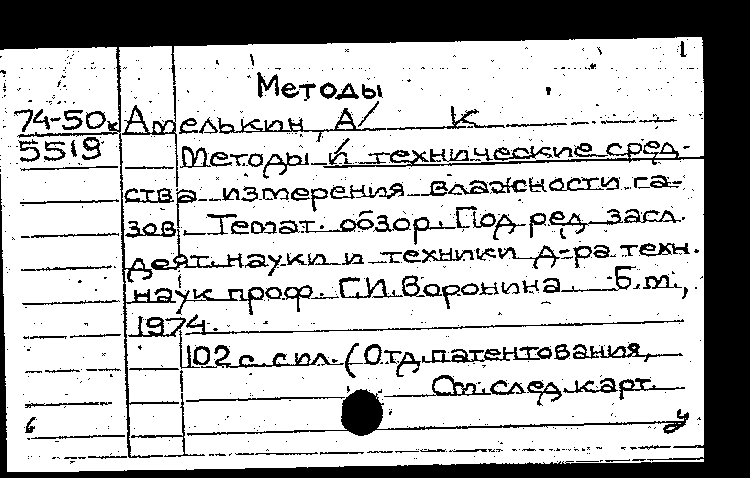 1
Методы
74-50к Амелькин, А/ К
5519 Методы и технические сред-
ства измерения влажности га-
зов. Темат. обзор. Под ред. засл.
деят. науки и техники д-ра техн.
наук проф. Г.И. Воронина. Б.м.,
1974.
102 с. с ил. (Отд. патентования,
См. след. карт.
6 У